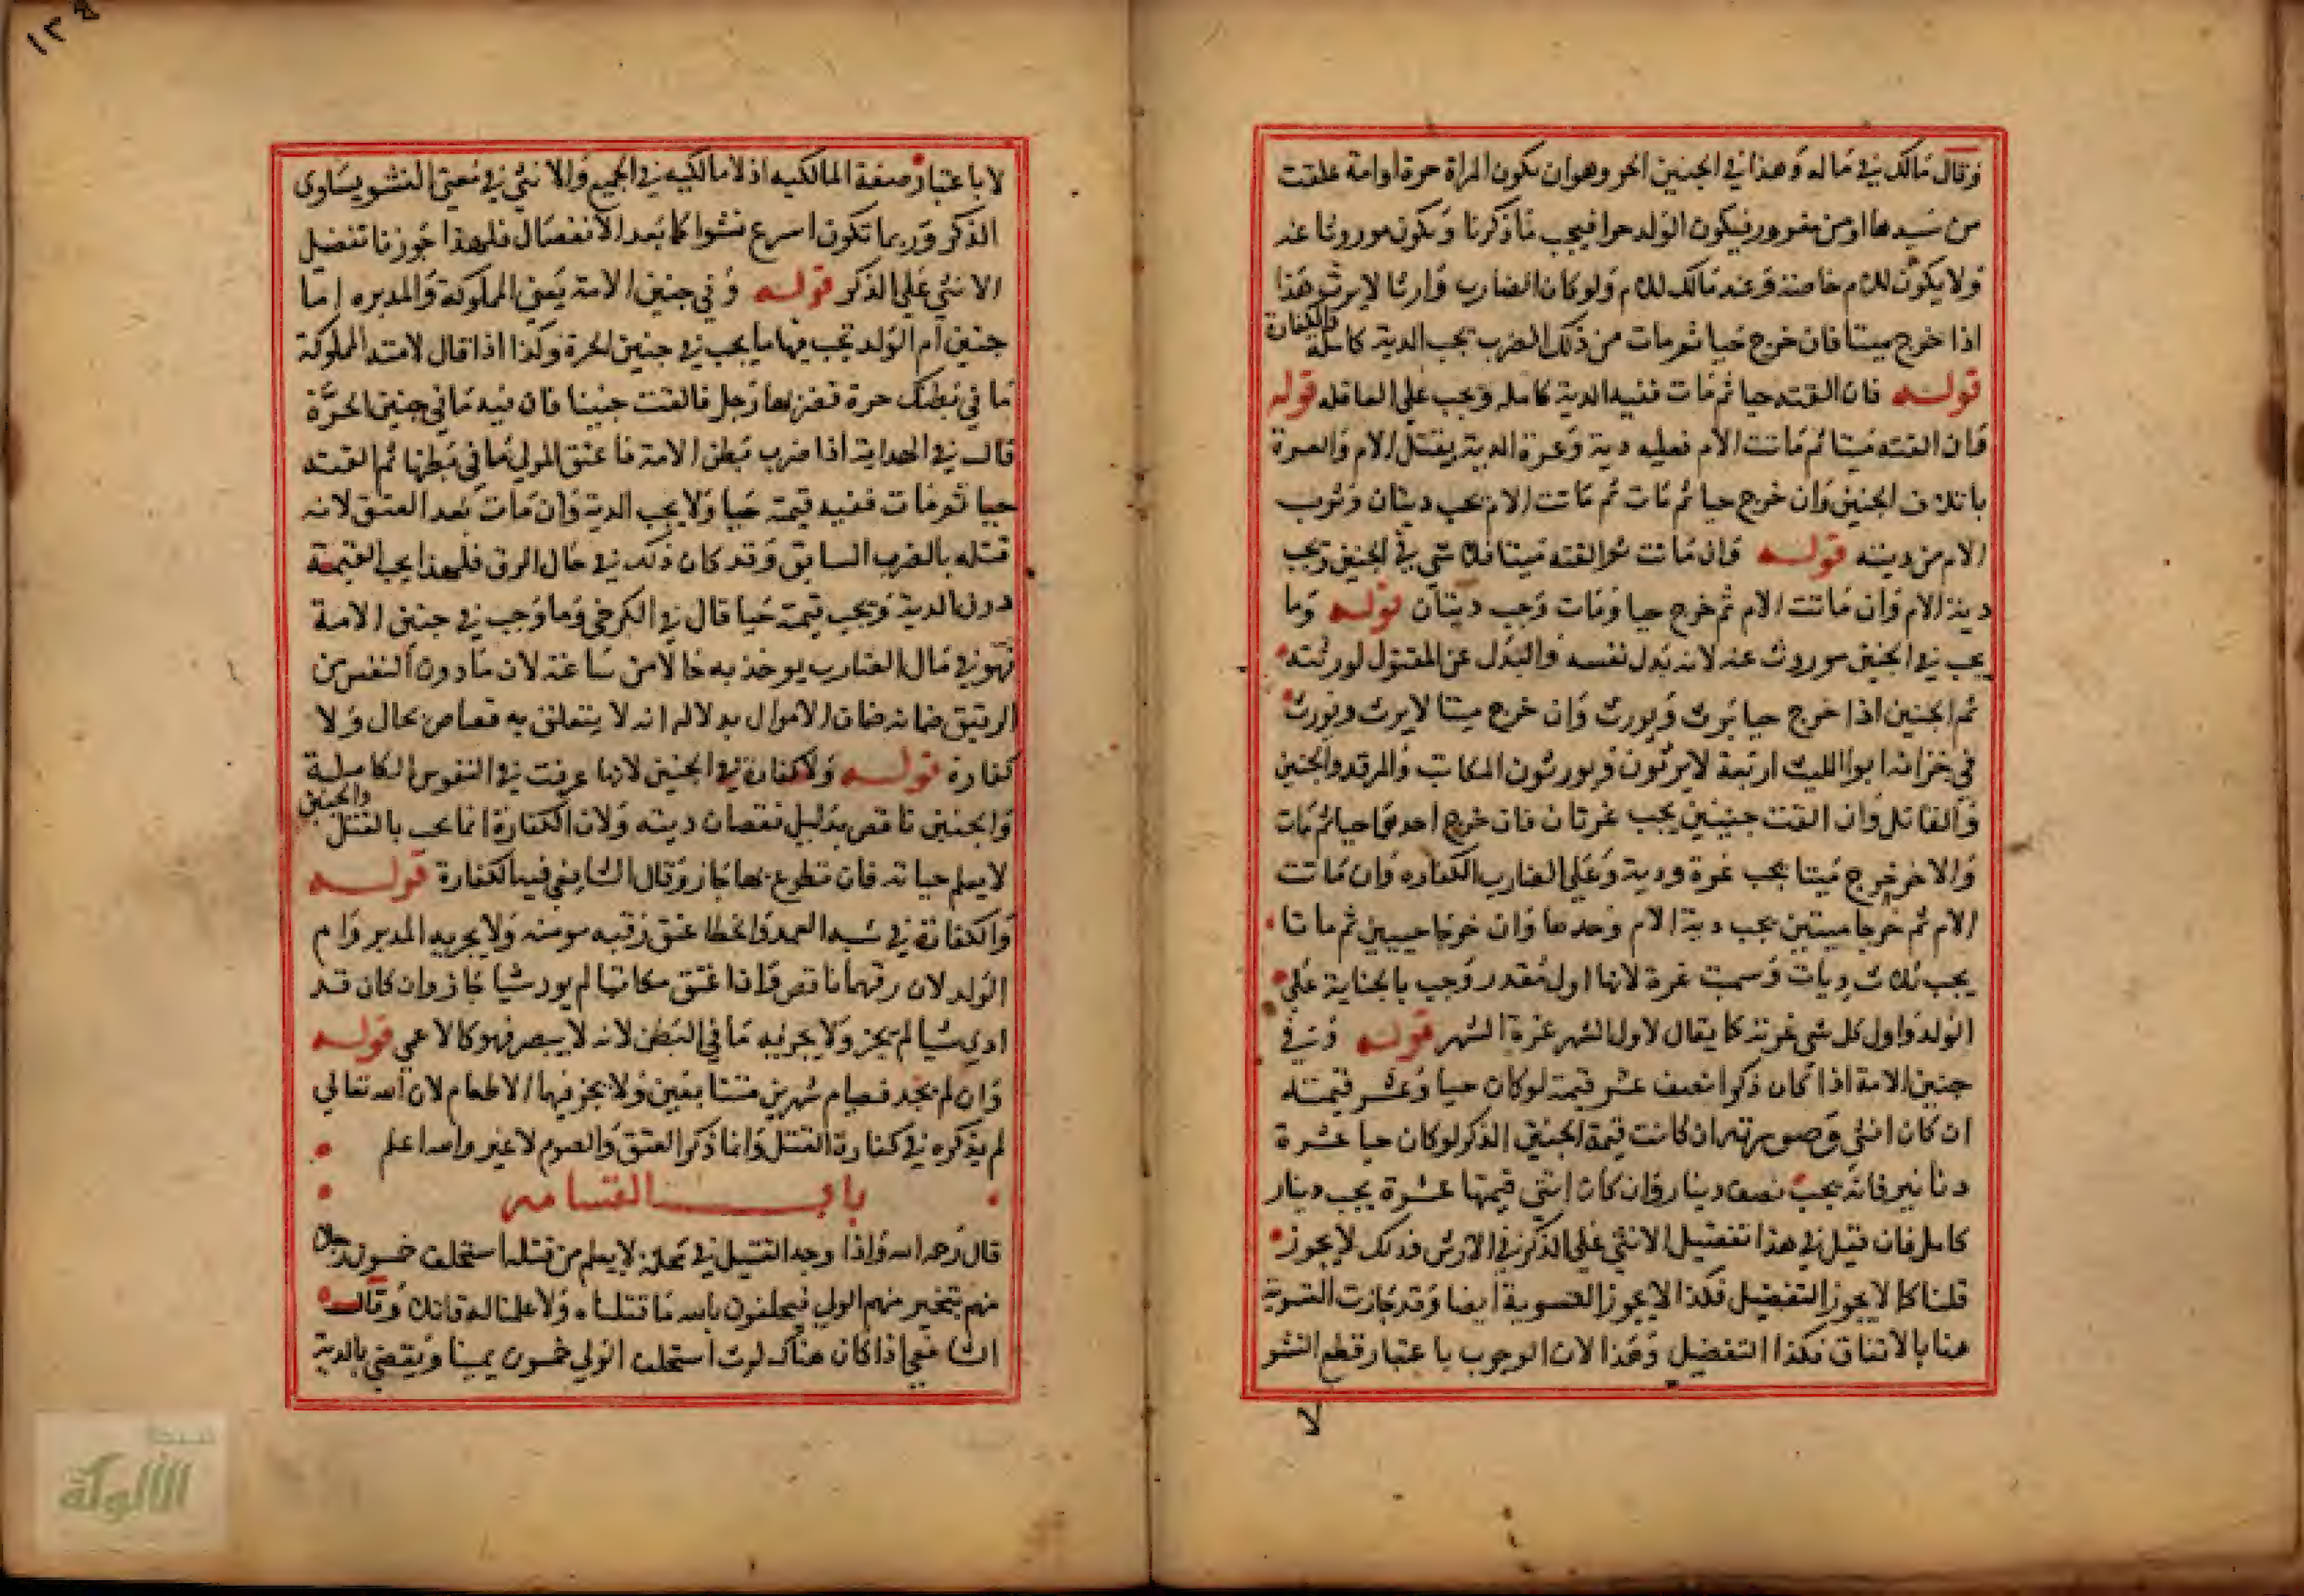 وقال مالك في ماله وهذا في الجنين الحر وهو ان يكون المراة حرة او امة علقت
من سيدها او من مغرور فيكون الولد حرا فيجب ما ذكرنا ويكون موروثا عنه
ولا يكون للام خاصة وعند مالك للام ولو كان الضارب وارثا لا يرث هذا
اذا خرج ميتا فان خرج حيا ثم مات من ذلك الضرب تجب الدية كاملة والكفارة
قوله فان القته حيا ثم مات ففيه الدية كاملة وتجب على العاقلة قوله
فان القته ميتا ثم ماتت الام فعليه دية وغرة الدية بقتل الام والغرة
باتلاف الجنين وان خرج حيا ثم مات ثم ماتت الام يجب ديتان وتوب
الام من ديته قوله فان ماتت ثم القته ميتا فلا شي في الجنين وتجب
دية الام وان ماتت الام ثم خرج حيا ومات وجب ديتان قوله وما
يجب في الجنين موروث عنه لانه بدل نفسه والبدل عن المقتول لورثته
ثم الجنين اذا خرج حيا يرث ويورث وان خرج ميتا لا يرث ويورث
في خزانة ابو الليث اربعة لا يرثون ويورثون المكاتب والمرتد والجنين
والقاتل وان القت جنينين يجب غرتان فان خرج احدهما حيا ثم مات
والاخر خرج ميتا يجب غرة ودية وعلى الضارب الكفاره وان ماتت
الام ثم خرجا ميتين يجب دية الام وحدها وان خرجا حيين ثم ماتا
يجب ثلاث ديات وسميت غرة لانها اول مقدر وجب بالجناية على
الولد واول كل شي غرته كما يقال لاول الشهر غرة الشهر قوله وفي
جنين الامة اذا كان ذكرا نصف عشر قيمته لو كان حيا وعشر قيمته
ان كان انثى وصورته ان كانت قيمة الجنين الذكر لو كان حيا عشرة
دنانير فانه يجب نصف دينار وان كان انثى قيمتها عشرة يجب دينار
كامل فان قيل في هذا تفضيل الانثى على الذكر في الارش وذلك لا يجوز
قلنا كما لا يجوز التفضيل فكذا لا يجوز التسوية ايضا وقد جازت التسوية
هنا بالاتفاق فكذا التفضيل وهذا لان الوجوب باعتبار قطع النشو
لا
١٣٤
لا باعتبار صفة المالكيه اذ لا مالكيه في الجميع والانثى في معنى النشو يساوى
الذكر وربما تكون اسرع نشوا كما بعد الانفصال فلهذا جوزنا تفضيل
الانثى على الذكر قوله وفي جنين الامة يعني المملوكة والمدبره اما
جنين ام الولد تجب فيها ما يجب في جنين الحرة وكذا اذا قال لامته المملوكة
ما في بطنك حرة فضربها رجل فالقت جنينا فان فيه ما في جنين الحرة
قال في الهداية اذا ضرب بطن الامة فاعتق المولى ما في بطنها ثم القته
حيا ثم مات ففيه قيمته حيا ولا يجب الدية وان مات بعد العتق لانه
قتله بالضرب السابق وقد كان ذلك في حال الرق فلهذا يجب القيمة
دون الدية وتجب قيمته حيا قال في الكرخي وما وجب في جنين الامة
فهو في مال الضارب يوخذ به حالا من ساعته لان ما دون النفس من
الرقيق ضمانه ضمان الاموال بدلالة انه لا يتعلق به قصاص بحال ولا
كفارة قوله ولا كفارة في الجنين لانها عرفت في النفوس الكاملية
والجنين ناقص بدليل نقصان ديته ولان الكفارة انما تجب بالقتل والجنين
لا يعلم حياته فان تطوع بها جاز وقال الشافعي فيه الكفارة قوله
والكفارة في شبه العمد والخطا عتق رقبه مومنه ولا يجزيه المدبر وام
الولد لان رقهما ناقص واذا عتق مكاتبا لم يود شيا جاز وان كان قد
ادى شيا لم يجز ولا يجزيه ما في البطن لانه لا يبصر فهو كالاعمي قوله
وان لم يجد فصيام شهرين متتابعين ولا يجز فيها الاطعام لان الله تعالي
لم يذكره في كفارة القتل وانما ذكر العتق والصوم لا غير والله اعلم
باب القسامه
قال رحمه الله واذا وجد القتيل في محلة لا يعلم من قتله استحلف خمسون رجلا
منهم يتخير منهم الولي فيحلفون بالله ما قتلناه ولا علمنا له قاتلا وقال
الشافعي اذا كان هناك لوث استحلف الولي خمسون يمينا ويقضي بالدية
شبكة
الألوكة